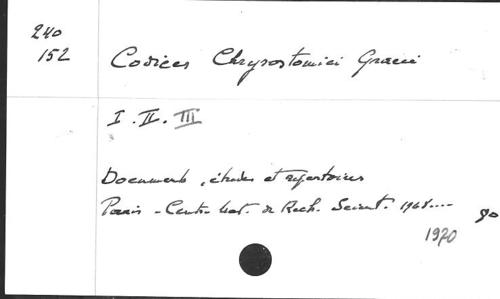 240
152
Codices Chrysostomici Graeci
I. II. III
Documents, études et répertoires
Paris - Centr. Nat. de Rech. Scient. 1968....
1970